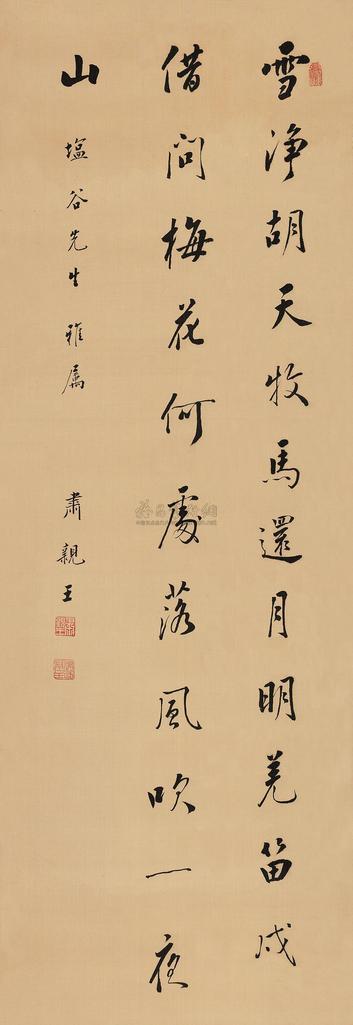 雪净胡天牧馬還月明羌笛戍
借問梅花何處落風吹一夜
山
塩谷先生雅属
肅親王